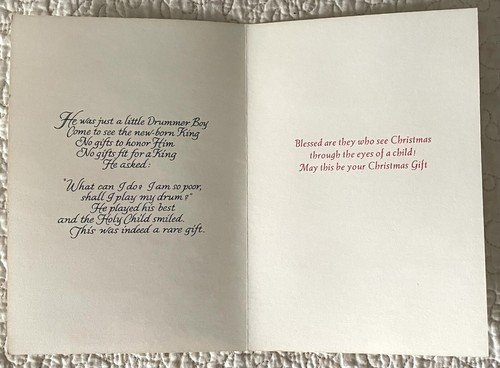 He was just a little Drummer Boy
Come to see the new-born King
No gifts to honor Him
No gifts fit for a King
He asked:
"What can I do? I am so poor,
shall I play my drum?"
He played his best
and the Holy Child smiled.
This was indeed a rare gift.
Blessed are they who see Christmas
through the eyes of a child!
May this be your Christmas Gift